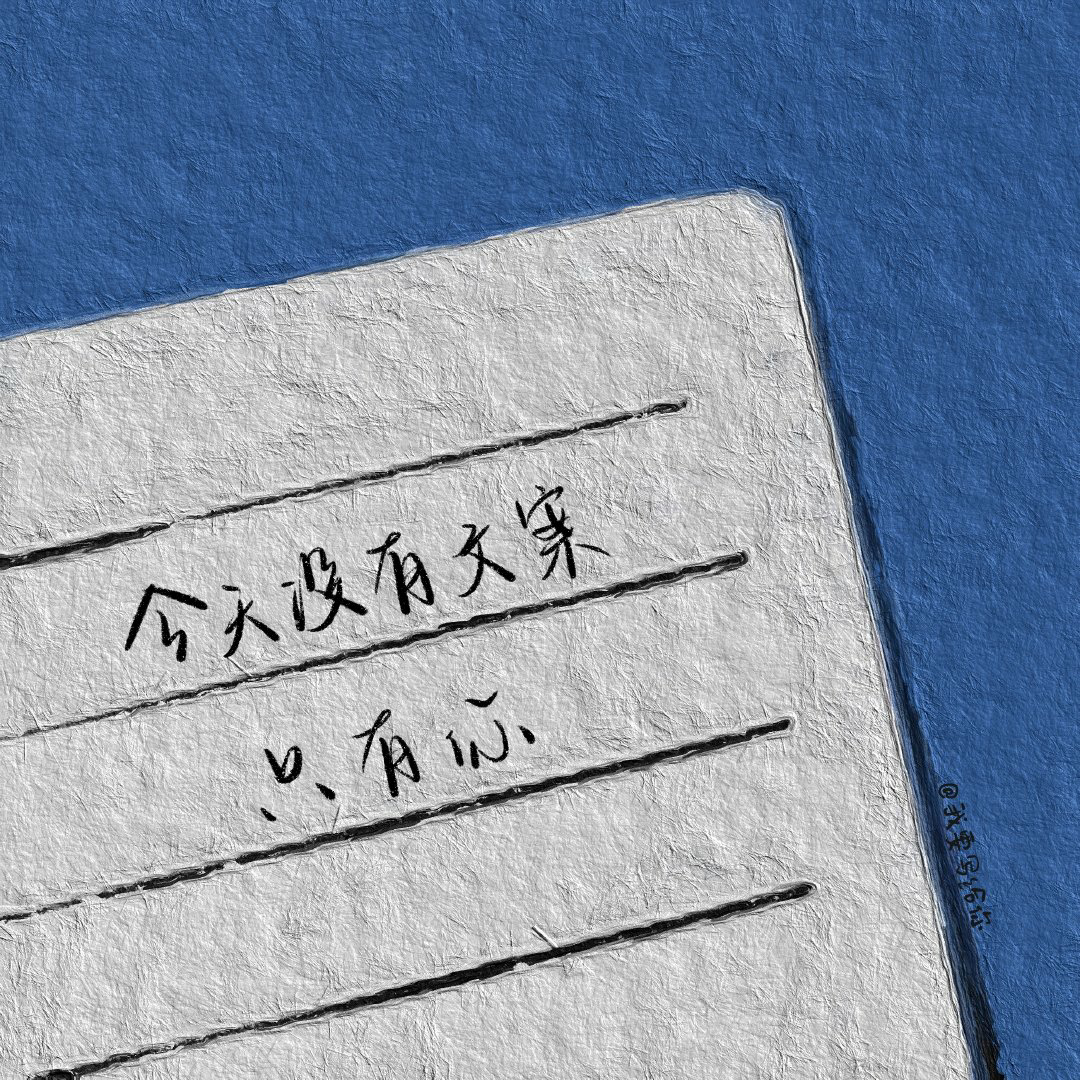 今天没有文案
只有你
@我要写给你